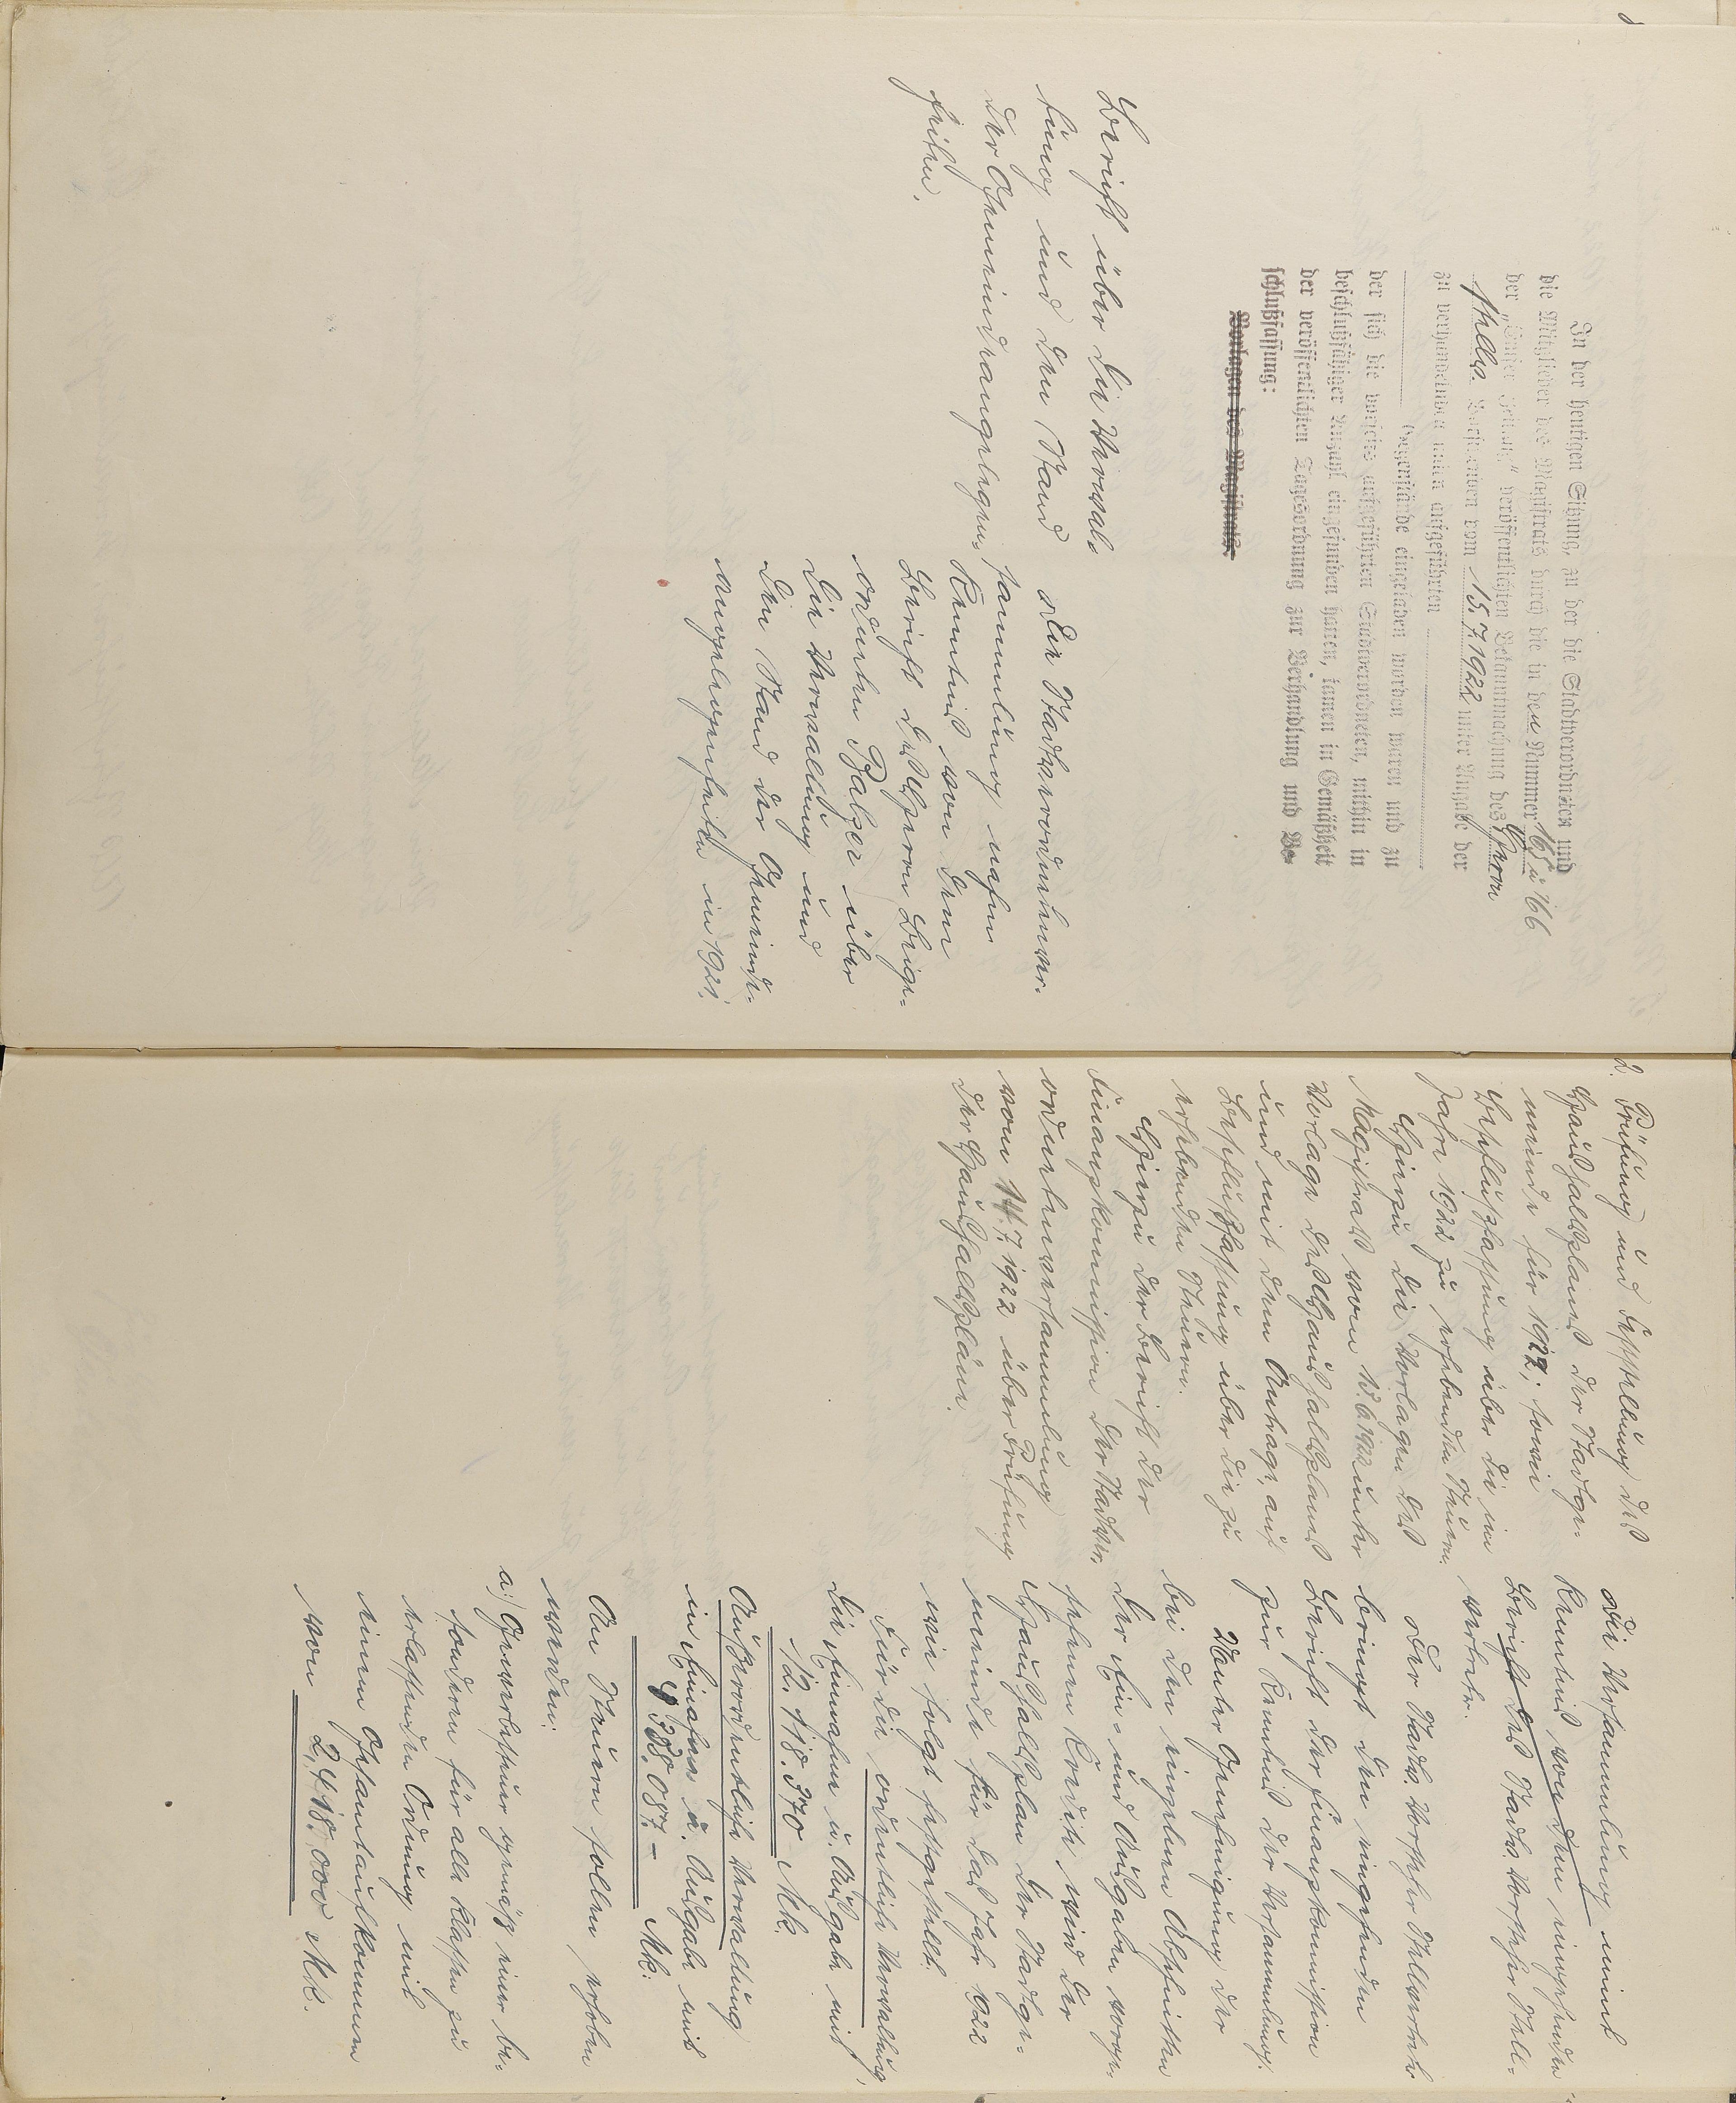 In der heutigen Sitzung, zu der die Stadtverordneten und
die Mitglieder des Magistrats durch die in den Nummer 165 u 166
der „ Zeitung“ veröffentlichten Bekanntmachung des Herrn
stellv. Vorstehers vom 15.7.1922 unter Angabe der
zu verhandelnden aufgeführten
Gegenstände eingeladen worden waren und zu
der sich die vorseits aufgeführten Stadtverordneten, mithin in
beschlußfähiger Anzahl eingefunden hatten, kamen in Gemäßheit
der veröffentlichten Tagesordnung zur Verhandlung und Be-
schlußfassung:
Vorlagen des Magistrats.
Bericht über die Verwal-
tung und den Stand
der Gemeindeangelegen-
heiten.
Die Stadtverordnetenver-
sammlung nahm
Kenntnis von dem
Bericht des Herrn Beige-
ordneten Balzer über
die Verwaltung und
den Stand der Gemeinde-
angelegenheiten in 1921.
2. Prüfung und Feststellung des
Haushaltsplans der Stadtge-
meinde für 1922; sowie
Beschlußfassung über die im
Jahre 1922 zu erhebenden Steuern.
Hierzu die Vorlagen des
Magistrats vom 13.6.1922 unter
Vorlage des Haushaltsplans
und mit dem Antrage, auf
Beschlußfassung über die zu
erhebenden Steuern.
Hierzu der Bericht der
Finanzkommission der Stadtver-
ordnetenversammlung
vom 14.7.1922 über Prüfung
der Haushaltspläne.
Die Versammlung nimmt
Kenntnis von dem eingehenden
Bericht des Stadtv. Vorsteher Stell-
vertreter.
Der Stadtv. Vorsteher Stellvertreter
bringt den eingehenden
Bericht der Finanzkommission
zur Kenntnis der Versammlung.
Unter Genehmigung der
bei den einzelnen Abschnitten
der Ein- und Ausgaben vorge-
sehenen Kredite wird der
Haushaltsplan der Stadtge-
meinde für das Jahr 1922
wie folgt festgestellt.
Für die ordentliche Verwaltung,
die Einnahme u. Ausgabe mit
12.118.370 Mk.
Außerordentliche Verwaltung
in Einnahme u. Ausgabe mit
4 338.087.- Mk.
An Steuern sollen erhoben
werden:
a) Gewerbesteuer gemäß einer be-
sonderen für alle Klassen zu
erlassenden Ordnung mit
einem Gesamtaufkommen
von 2,418,000 Mk.